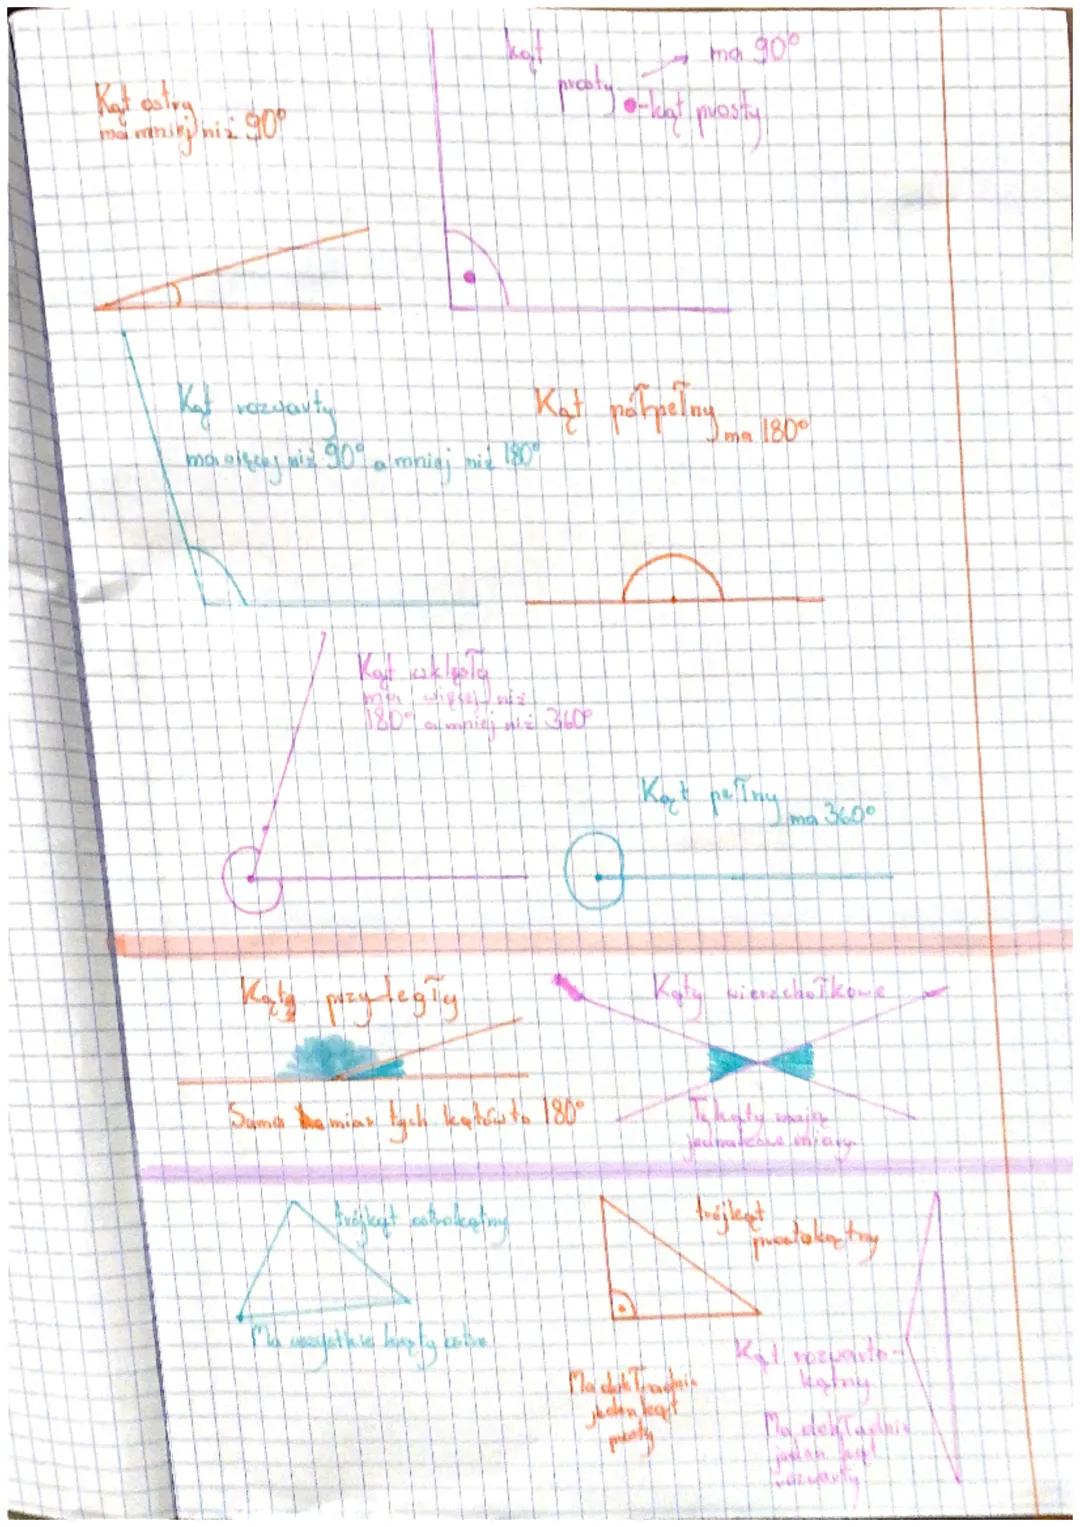 Kąt ostry
ma mniej niż 90°
kąt
prosty → ma 90°
•-kąt prosty
Kąt rozwarty
ma więcej niż 90° a mniej niż 180°
Kąt półpełny
ma 180°
Kąt wklęsły
ma więcej niż
180° a mniej niż 360°
Kąt pełny
ma 360°
Kąty przyległy
Suma miar tych kątów to 180°
Kąty wierzchołkowe
Te kąty mają
jednakowe miary
trójkąt ostrokątny
Ma wszystkie kąty ostre
trójkąt
prostokątny
Ma dokładnie
jeden kąt
prosty
Kąt rozwarto-
kątny
Ma dokładnie
jeden kąt
rozwarty